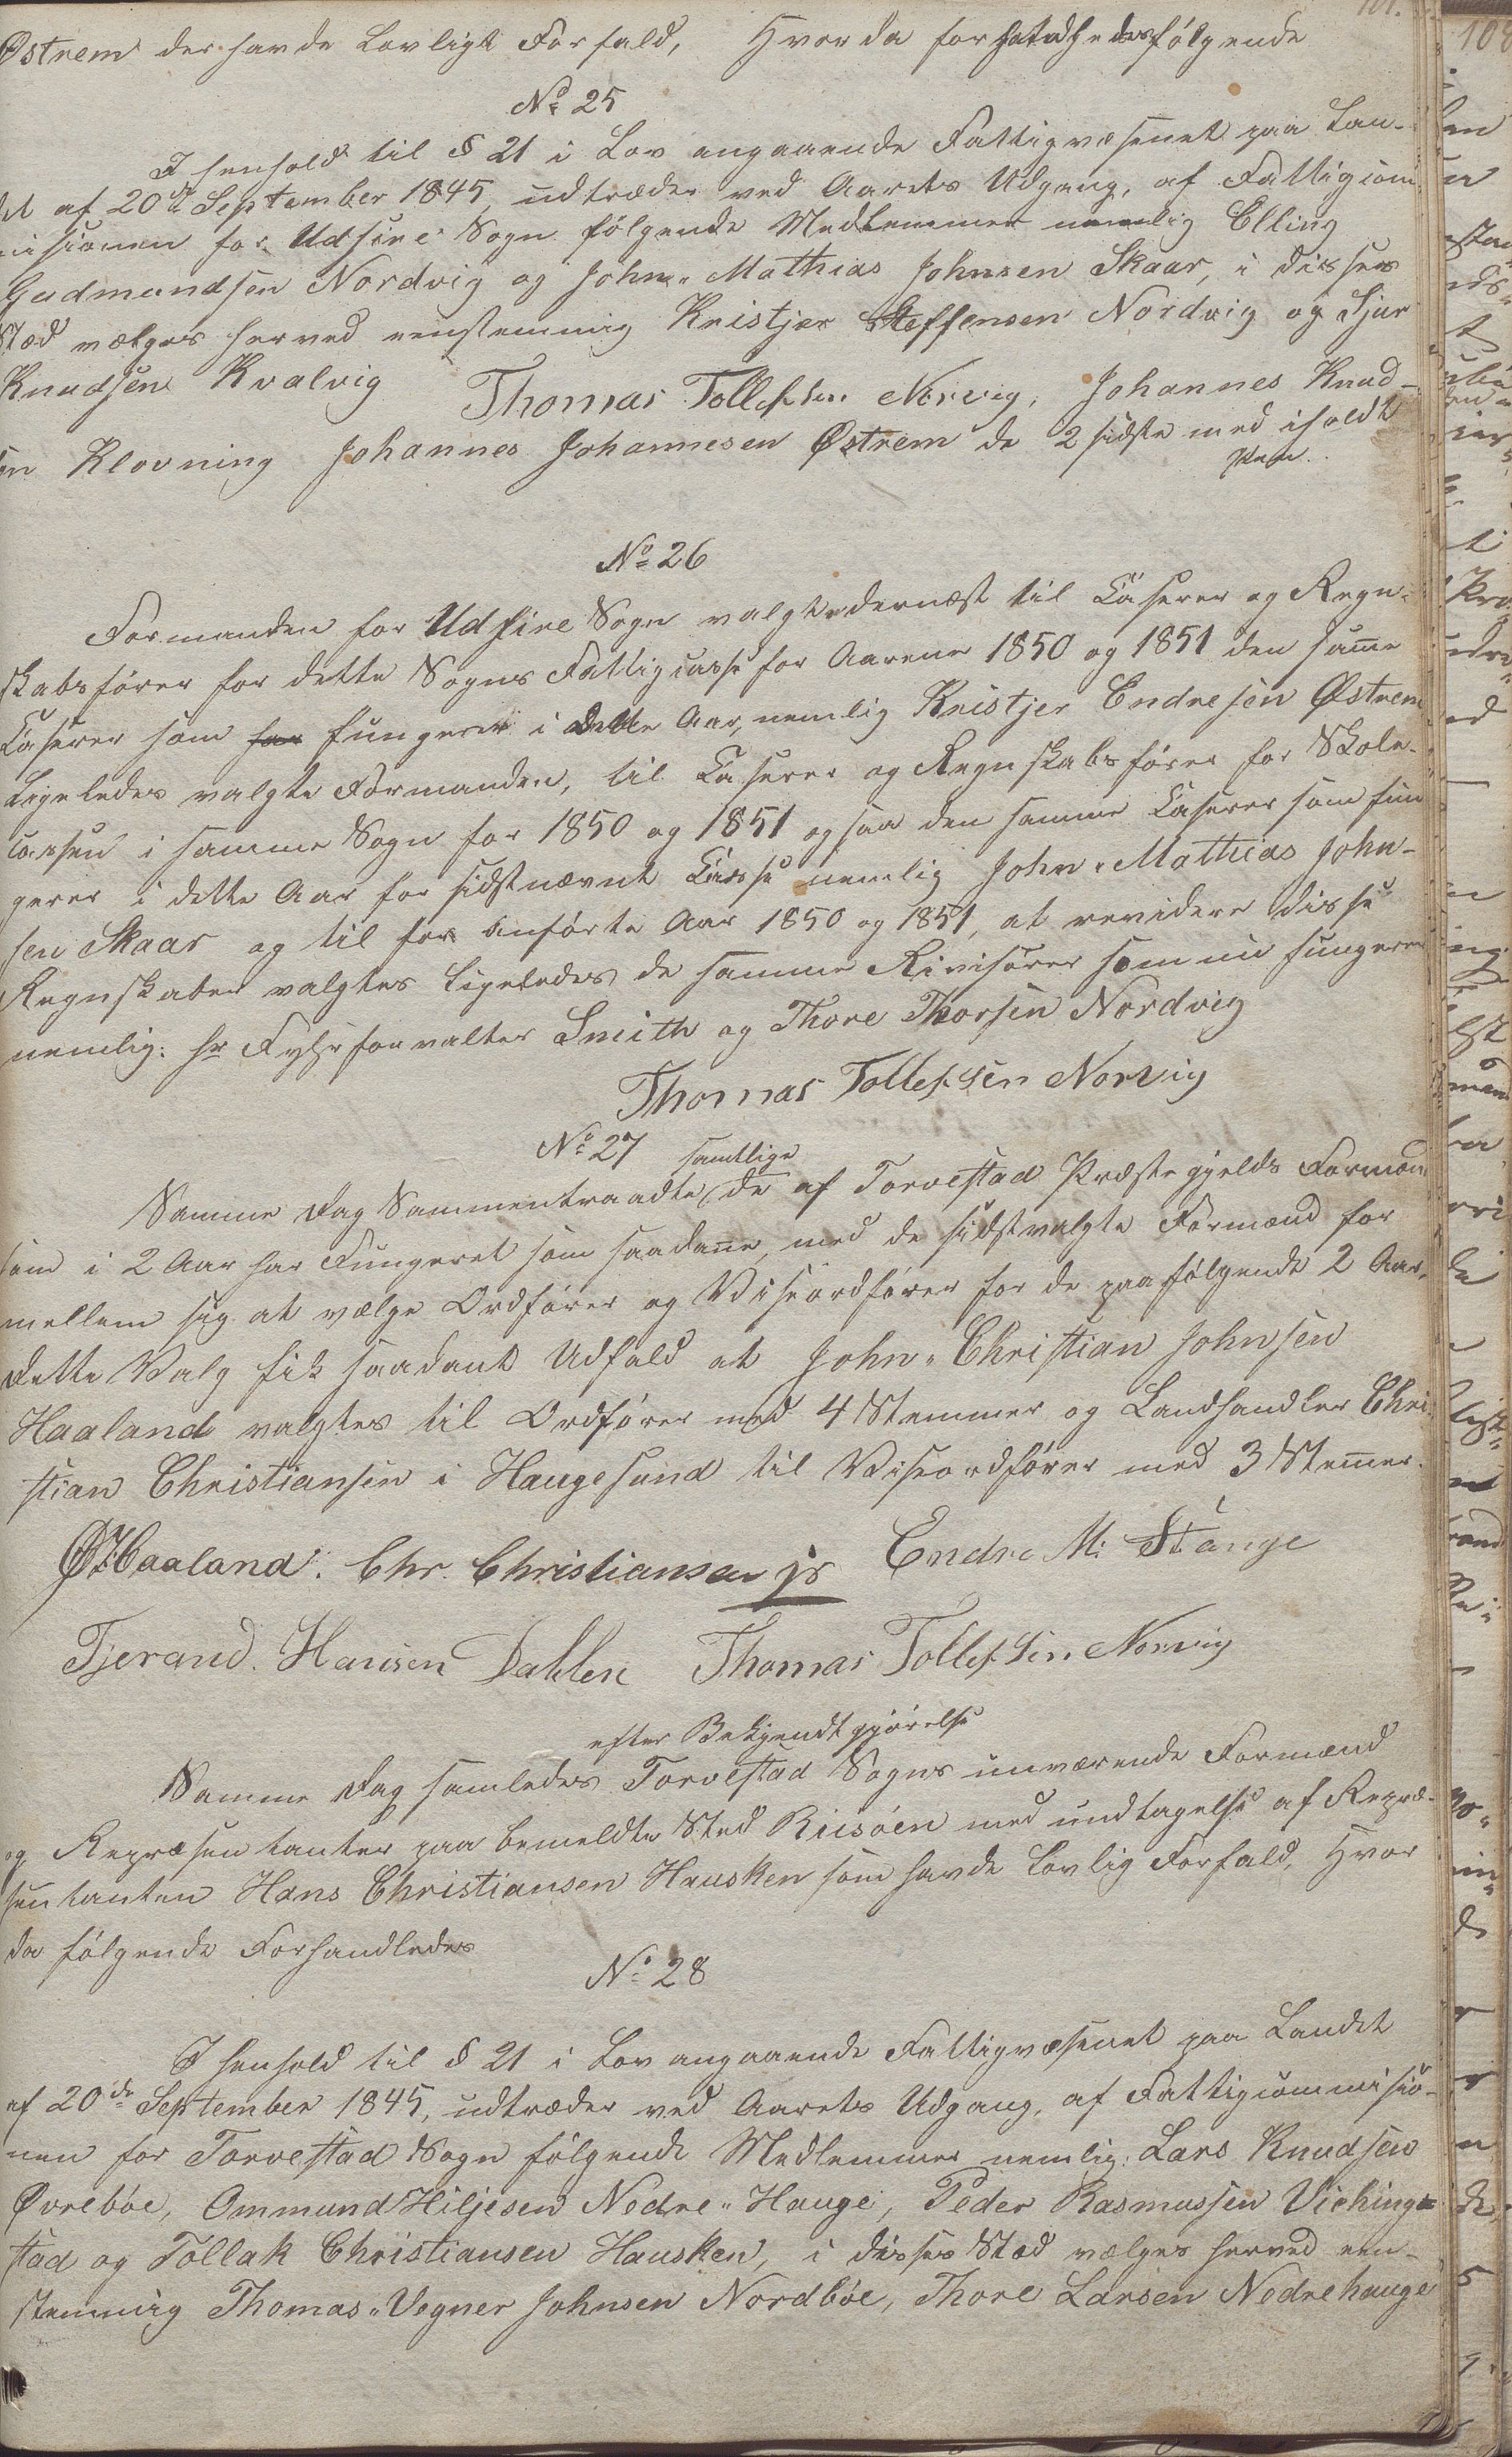 101.
Østrem der havde Lovligt Forfald, Hvor da forhandledes følgende
No 25
I henhold til § 21 i Lov angaaende Fattigvæsenet paa Lan-
det af 20de September 1845, udtræder ved Aarets Udgang, af Fattigcom
misionen for Udsire Sogn følgende Medlemmer nemlig Elling
Gudmundsen Nordvig og John "Mathias Johnsen Skaar, i disses
Stæd vælges herved eenstemmig Kristjer Steffensen Nordvig og Sjur
Knudsen Kvalvig Thomas Tollefsen Norvig, Johannes Knud-
sen Klovning Johannes Johannesen Østrem de 2 sidste med iholdt
Pen.
No 26
Formanden for Udsire Sogn valgte dernæst til Caserer og Regn-
skabsfører for dette Sogns Fattigcasse for Aarene 1850 og 1851 den samme
Caserer som har fungerer i dette Aar, nemlig Kristjer Endresen Østrem
Ligeledes valgte Formanden, til Caserer og Regnskabsfører for Skole-
cassen i samme Sogn for 1850 og 1851 ogsaa den samme Caserer som fun
gerer i dette Aar for sidstnævnt Casse nemlig John "Mathias John-
sen Skaar og til for anførte Aar 1850 og 1851, at revidere disse
Regnskaber valgtes Ligeledes de samme Rivisorer som nu fungerer
nemlig: hr Fyhrforvalter Smith og Thore Thorsen Nordvig
Thomas Tollefsen Norvig
No 27
samtlige
Samme Dag Sammentraadte de af Torvestad Præstegjelds Formæn
som i 2 Aar har Fungeret som saadanne, med de sidstvalgte Formænd for
mellem sig at vælge Ordfører og Viseordfører for de paafølgende 2 Aar.
Dette Valg fik saadant Udfald at John "Christian Johnsen
Haaland valgtes til Ordfører med 4 Stemmer og Landhandler Chri
stian Christiansen i Haugesund til Viseordfører med 3 Stemmer.
Haaland. Chr. Christiansen jr Endre M. Stange
Tjerand. Hansen Dahlen Thomas Tollefsen Norvig
efter Bekjendtgjørelse
Samme Dag samledes Torvestad Sogns unværende Formænd
og Repræsentanter paa bemeldte Sted Risöen med undtagelse af Repræ-
sentanten Hans Christiansen Hausken som havde Lovlig Forfald, Hvor
da følgende Forhandledes
No 28
I henhold til § 21 i Lov angaaende Fattigvæsenet paa Landet
af 20de September 1845, udtræder ved Aarets Udgang, af Fattigcommisio-
nen for Torvestad Sogn følgende Medlemmer nemlig: Lars Knudsen
Øvrebøe, Ommund Hiljesen Nedre "Hauge, Peder Rasmussen Viching-
stad og Tollak Christiansen Hausken, i disses Stæd vælges herved een-
stemmig Thomas "Vegner Johnsen Nordbøe, Thore Larsen Nedrehauge
108